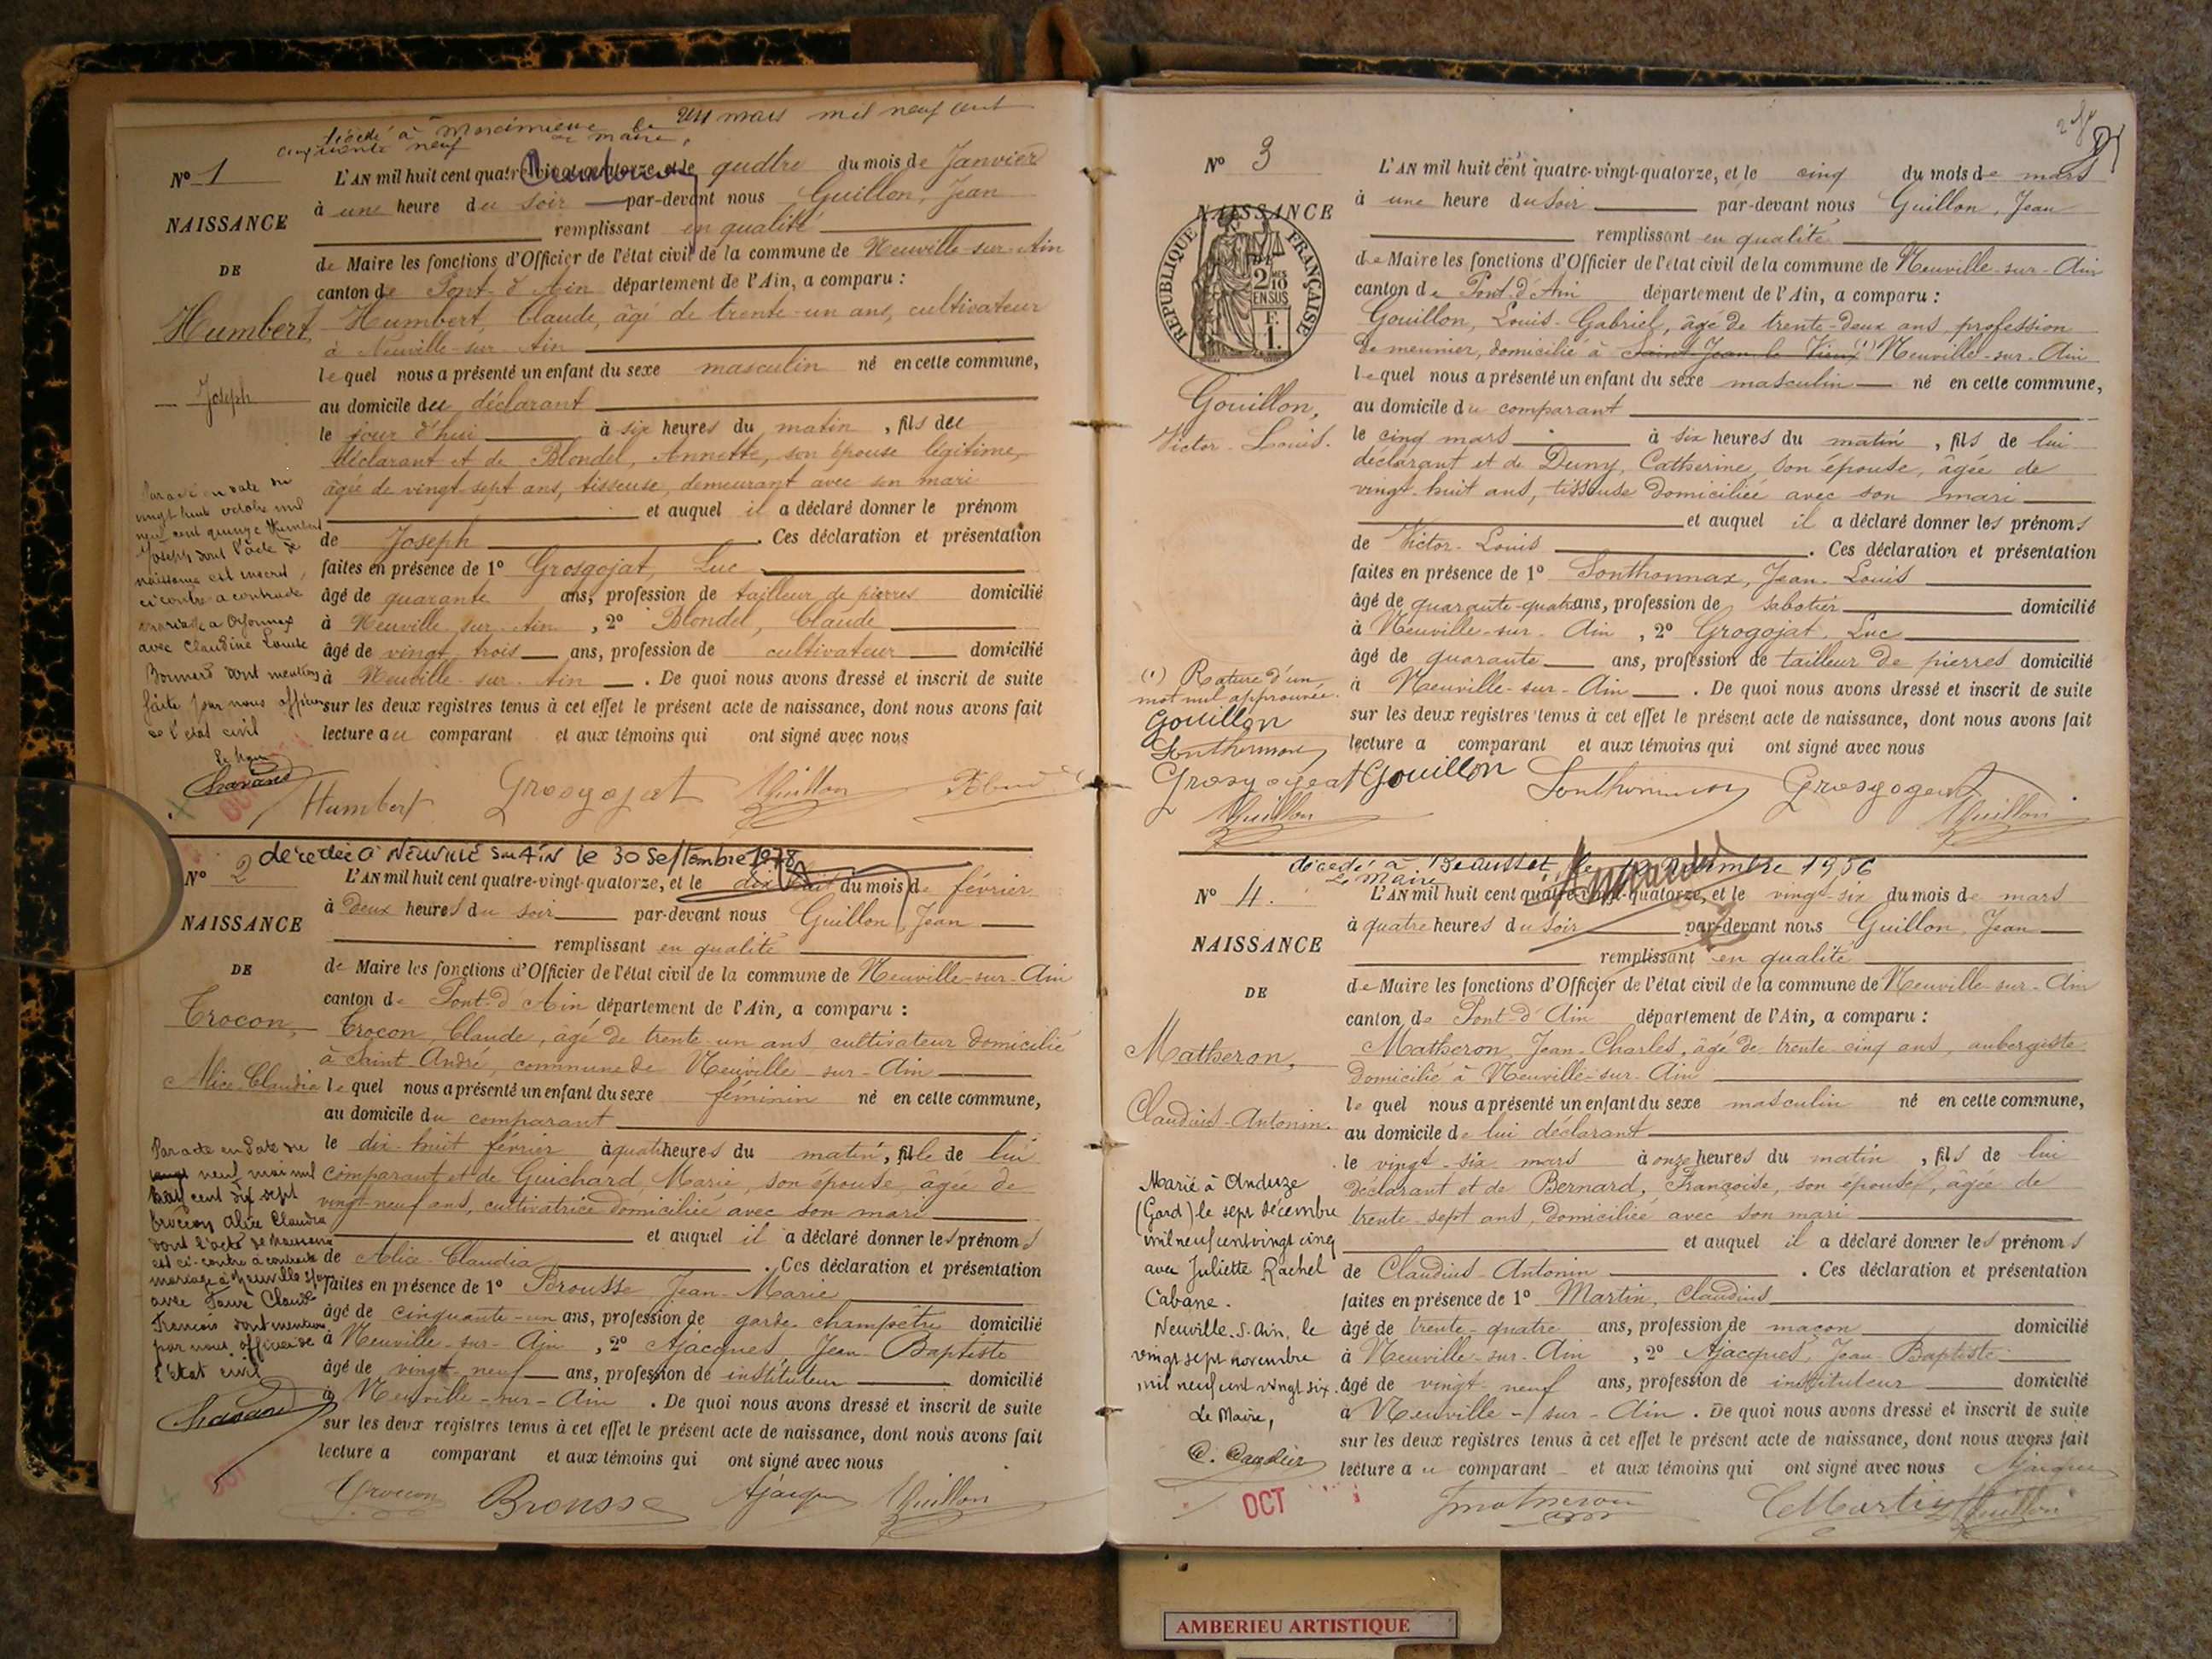 décédé à le 24 mars mil neuf cent
cinquante neuf le maire,
N° 1 L'AN mil huit cent quatre-vingt-quatorze, et le quatre du mois de Janvier
NAISSANCE à une heure du soir par-devant nous Guillon, Jean
remplissant en qualité
DE de Maire les fonctions d'Officier de l'état civil de la commune de Neuville-sur-Ain
canton de Pont-d'Ain département de l'Ain, a comparu :
Humbert, Humbert, Claude, âgé de trente-un ans, cultivateur
à Neuville-sur-Ain
lequel nous a présenté un enfant du sexe masculin né en cette commune,
Joseph au domicile du déclarant
le jour d'hui à six heures du matin, fils du
déclarant et de Blondel, Annette, son épouse légitime,
âgée de vingt-sept ans, tisseuse, demeurant avec son mari
et auquel il a déclaré donner le prénom
de Joseph . Ces déclaration et présentation
faites en présence de 1° Grosgojat, Luc
âgé de quarante ans, profession de tailleur de pierres domicilié
à Neuville-sur-Ain, 2° Blondel, Claude
âgé de vingt-trois ans, profession de cultivateur domicilié
à Neuville-sur-Ain . De quoi nous avons dressé et inscrit de suite
sur les deux registres tenus à cet effet le présent acte de naissance, dont nous avons fait
lecture au comparant et aux témoins qui ont signé avec nous
Par acte en date du
vingt huit octobre mil
neuf cent quinze Humbert
Joseph dont l'acte de
naissance est inscrit
ci contre a contracté
mariage à Oyonnax
avec Claudine Louise
Bonnerd dont mention
faite par nous officier
de l'état civil
Le Maire
Chavand
Humbert Grosgojat Guillon
décédée à NEUVILLE sur AIN le 30 Septembre 1978
N° 2 L'AN mil huit cent quatre-vingt-quatorze, et le dix-huit du mois de février
à deux heures du soir par-devant nous Guillon, Jean
NAISSANCE remplissant en qualité
DE de Maire les fonctions d'Officier de l'état civil de la commune de Neuville-sur-Ain
canton de Pont-d'Ain département de l'Ain, a comparu :
Trocon, Trocon, Claude, âgé de trente-un ans, cultivateur domicilié
à Saint-André, commune de Neuville-sur-Ain
Alice-Claudia lequel nous a présenté un enfant du sexe féminin né en cette commune,
au domicile du comparant
le dix-huit février à quatre heures du matin, fille de lui
comparant et de Guichard, Marie, son épouse, âgée de
vingt-neuf ans, cultivatrice domiciliée avec son mari
et auquel il a déclaré donner les prénoms
de Alice-Claudia . Ces déclaration et présentation
faites en présence de 1° Brousse, Jean-Marie
âgé de cinquante-un ans, profession de garde champêtre domicilié
à Neuville-sur-Ain, 2° Ajacques, Jean-Baptiste
âgé de vingt-neuf ans, profession de instituteur domicilié
à Neuville-sur-Ain . De quoi nous avons dressé et inscrit de suite
sur les deux registres tenus à cet effet le présent acte de naissance, dont nous avons fait
lecture a comparant et aux témoins qui ont signé avec nous
Par acte en date du
vingt neuf mai mil
huit cent dix sept
Trocon Alice Claudia
dont l'acte de naissance
est ci-contre a contracté
mariage à Neuville s/Ain
avec Favre Claude
François dont mention
par nous officier de
l'état civil
Chavand
OCT
Trocon Brousse Ajacques Guillon
N° 3 L'AN mil huit cent quatre-vingt-quatorze, et le cinq du mois de mars
NAISSANCE à une heure du soir par-devant nous Guillon, Jean
remplissant en qualité
RÉPUBLIQUE FRANÇAISE
2 MES 10 EN SUS F. 1.
de Maire les fonctions d'Officier de l'état civil de la commune de Neuville-sur-Ain
canton de Pont-d'Ain département de l'Ain, a comparu :
Gouillon, Louis-Gabriel, âgé de trente-deux ans, profession
de meunier, domicilié à Saint-Jean-le-Vieux (1) Neuville-sur-Ain
lequel nous a présenté un enfant du sexe masculin né en cette commune,
Gouillon, au domicile du comparant
Victor-Louis. le cinq mars à six heures du matin, fils de lui
déclarant et de Duny, Catherine, son épouse, âgée de
vingt-huit ans, tisseuse domiciliée avec son mari
et auquel il a déclaré donner les prénoms
de Victor-Louis . Ces déclaration et présentation
faites en présence de 1° Sonthonnax, Jean-Louis
âgé de quarante-quatre ans, profession de sabotier domicilié
à Neuville-sur-Ain, 2° Grogojat, Luc
âgé de quarante ans, profession de tailleur de pierres domicilié
à Neuville-sur-Ain . De quoi nous avons dressé et inscrit de suite
sur les deux registres tenus à cet effet le présent acte de naissance, dont nous avons fait
lecture a comparant et aux témoins qui ont signé avec nous
(1) Rature d'un
mot nul approuvée.
Gouillon
Sonthonnax
Grosgogeat Gouillon Sonthonnax Grosgogeat
Guillon Guillon
décédé à Beausset, le décembre 1956
Le Maire
N° 4. L'AN mil huit cent quatre-vingt-quatorze, et le vingt-six du mois de mars
à quatre heures du soir par-devant nous Guillon, Jean
NAISSANCE remplissant en qualité
DE de Maire les fonctions d'Officier de l'état civil de la commune de Neuville-sur-Ain
canton de Pont-d'Ain département de l'Ain, a comparu :
Matheron, Matheron, Jean-Charles, âgé de trente-cinq ans, aubergiste
domicilié à Neuville-sur-Ain
lequel nous a présenté un enfant du sexe masculin né en cette commune,
Claudius-Antonin. au domicile de lui déclarant
le vingt-six mars à onze heures du matin, fils de lui
déclarant et de Bernard, Françoise, son épouse, âgée de
trente-sept ans, domiciliée avec son mari
et auquel il a déclaré donner les prénoms
de Claudius-Antonin . Ces déclaration et présentation
faites en présence de 1° Martin, Claudius
âgé de trente-quatre ans, profession de maçon domicilié
à Neuville-sur-Ain, 2° Ajacques, Jean-Baptiste
âgé de vingt-neuf ans, profession de instituteur domicilié
à Neuville-sur-Ain . De quoi nous avons dressé et inscrit de suite
sur les deux registres tenus à cet effet le présent acte de naissance, dont nous avons fait
lecture au comparant et aux témoins qui ont signé avec nous Ajacques
Marié à Anduze
(Gard) le sept décembre
mil neuf cent vingt cinq
avec Juliette Rachel
Cabane.
Neuville-s-Ain, le
vingt sept novembre
mil neuf cent vingt six.
Le Maire,
OCT
Jmatheron CMartin Guillon
AMBERIEU ARTISTIQUE